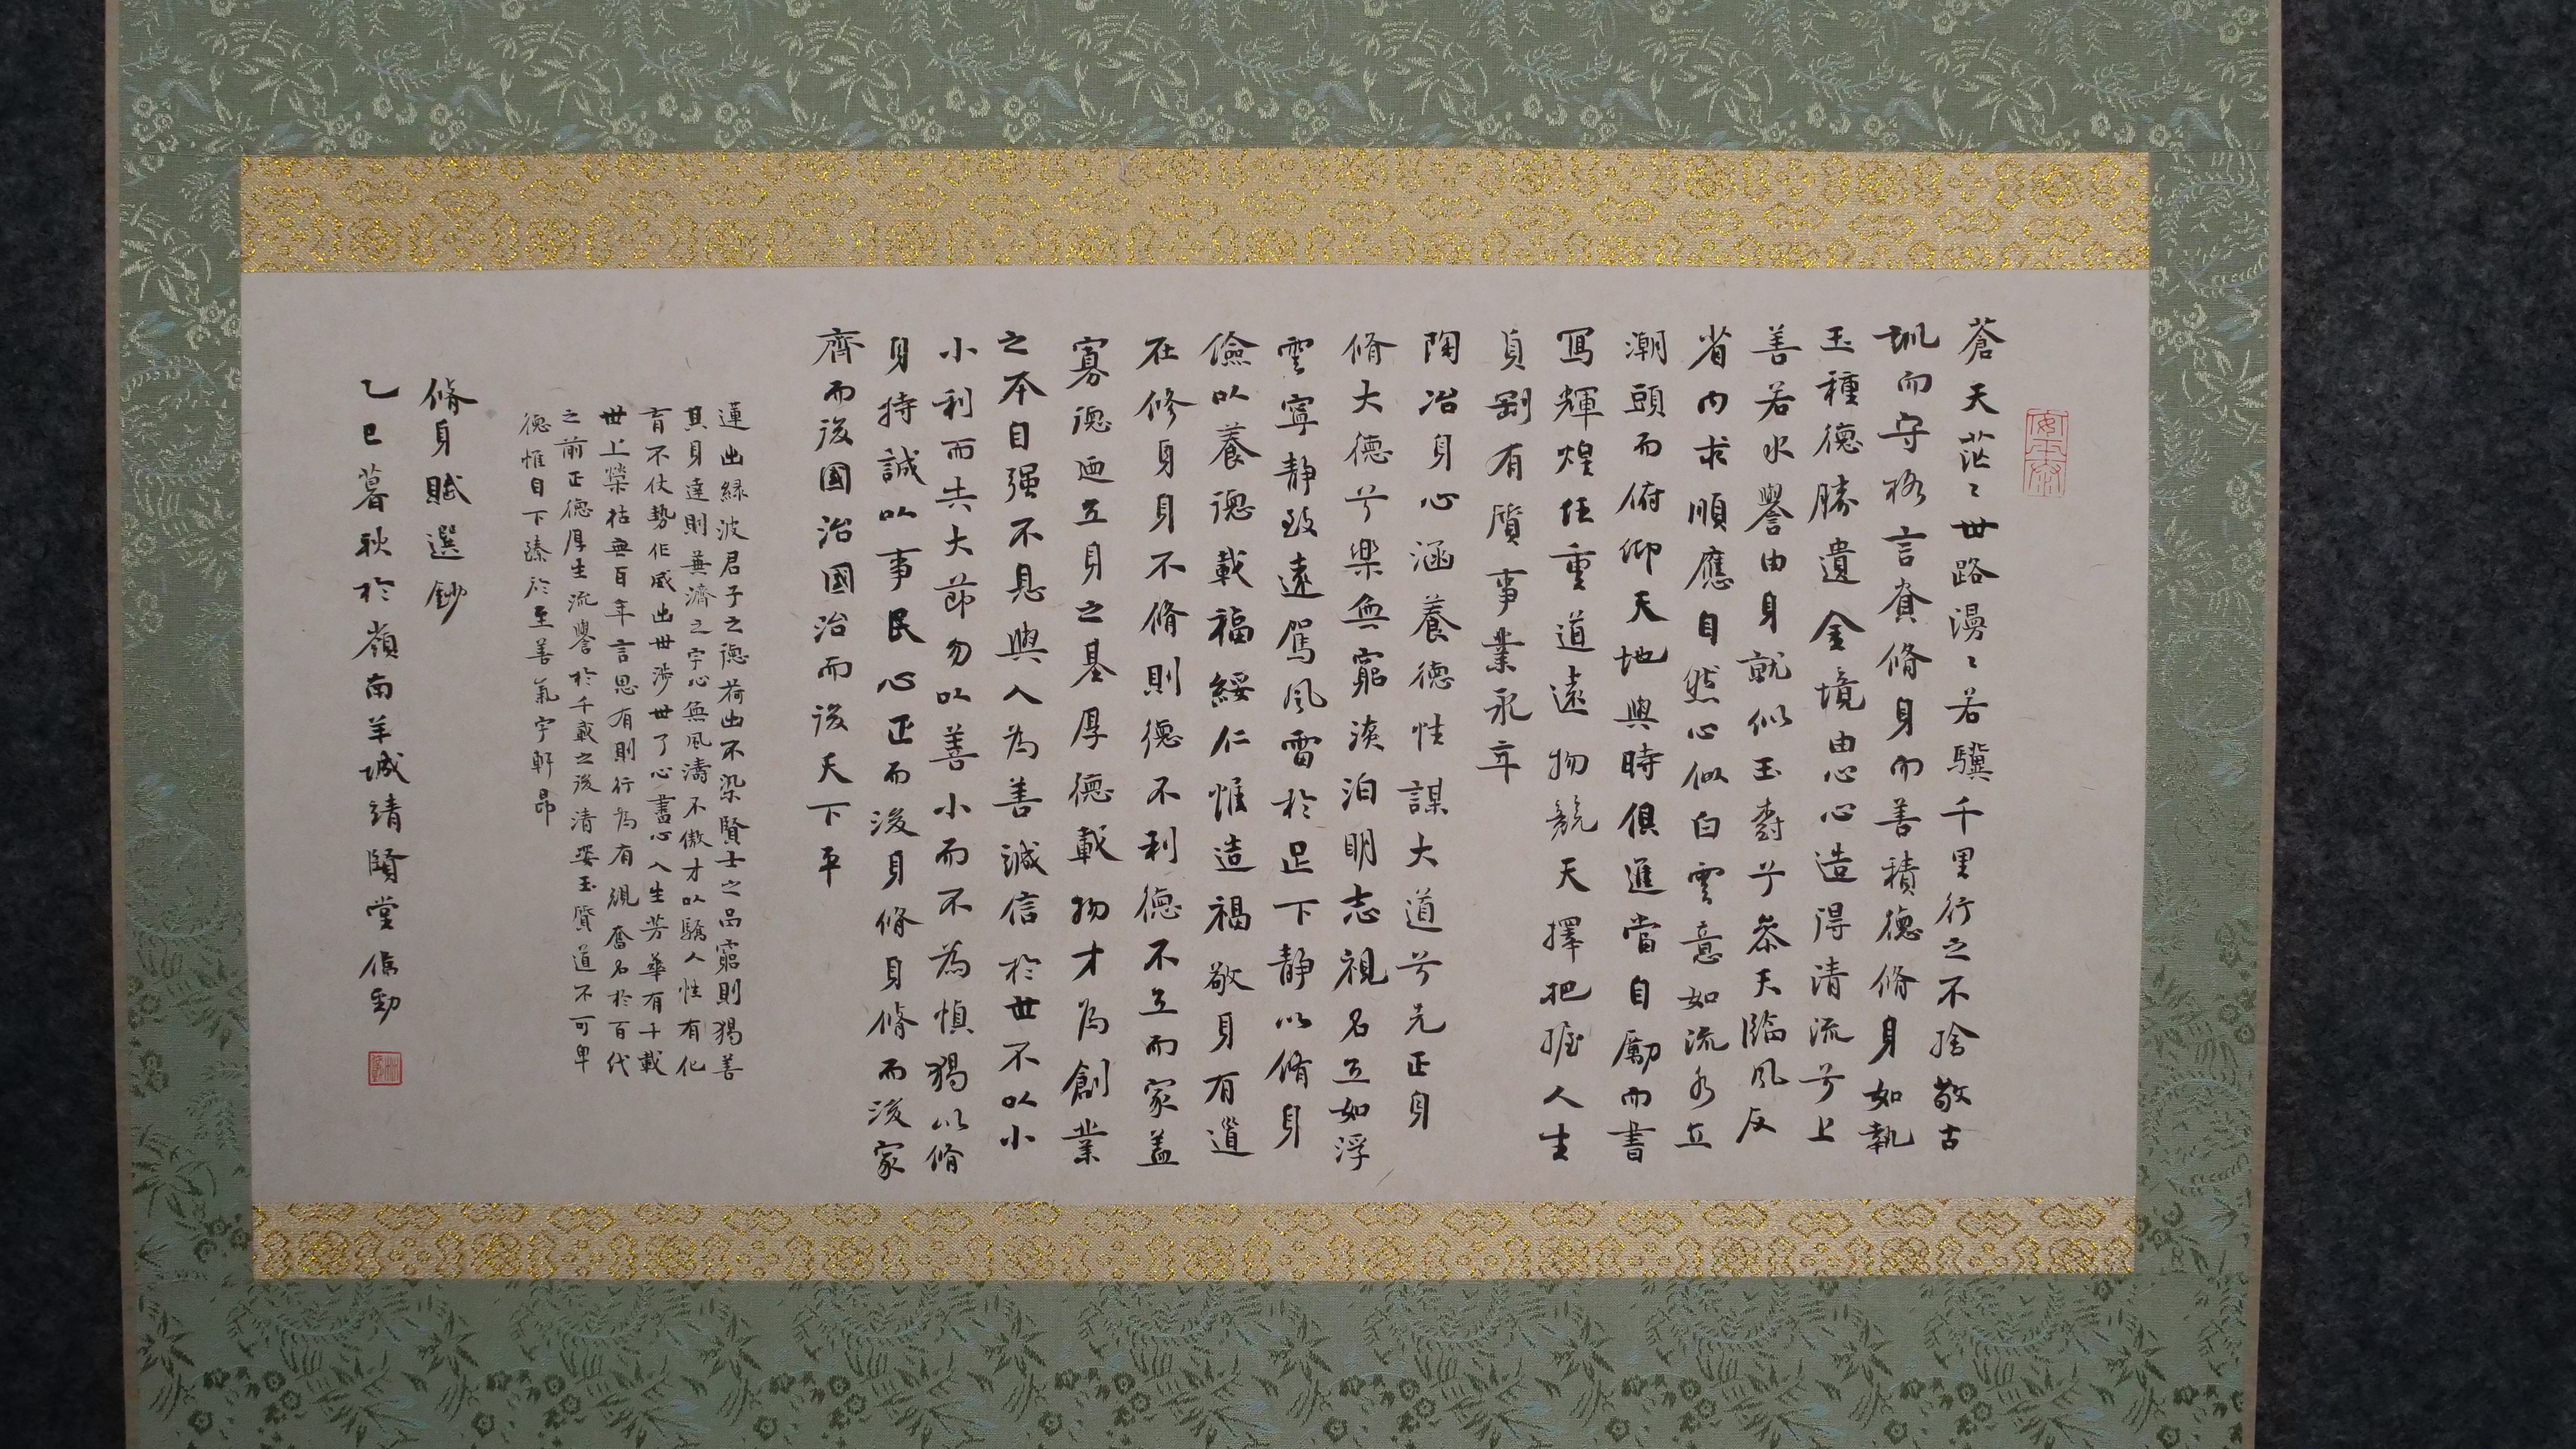 蒼天茫〻世路漫〻若驥千里行之不捨敬古
訓而守格言賁脩身而善積德脩身如執
玉種德勝遺金境由心心造得清流兮上
善若水譽由身就似玉樹兮參天臨風反
省内求順應自然心似白雲意如流水立
潮頭而俯仰天地與時俱進當自勵而書
寫輝煌任重道遠物競天擇把握人生
貞剛有質事業永年
陶冶身心涵養德性謀大道兮先正身
脩大德兮樂無窮淡泊明志視名立如浮
雲寧靜致遠駕風雷於足下靜以脩身
儉以養德載福綏仁惟造福敬身有道
在修身身不脩則德不利德不立而家蓋
寡德迺立身之基厚德載物才為創業
之本自强不息與人為善誠信於世不以小
小利而失大節勿以善小而不為慎獨以脩
身持誠以事民心正而後身脩身脩而後家
齊而後國治國治而後天下平
蓮出緑波君子之德荷出不染賢士之品窮則獨善
其身達則兼濟之宇心無風濤不傲才以驕人性有化
育不仗勢作威出世涉世了心書心人生芳華有千載
世上榮枯無百年言思有則行為有規奮名於百代
之前正德厚生流譽於千載之後清姿玉質道不可卑
德惟自下臻於至善氣宇軒昂
脩身賦選鈔
乙巳暮秋於嶺南羊城靖賢堂信勁